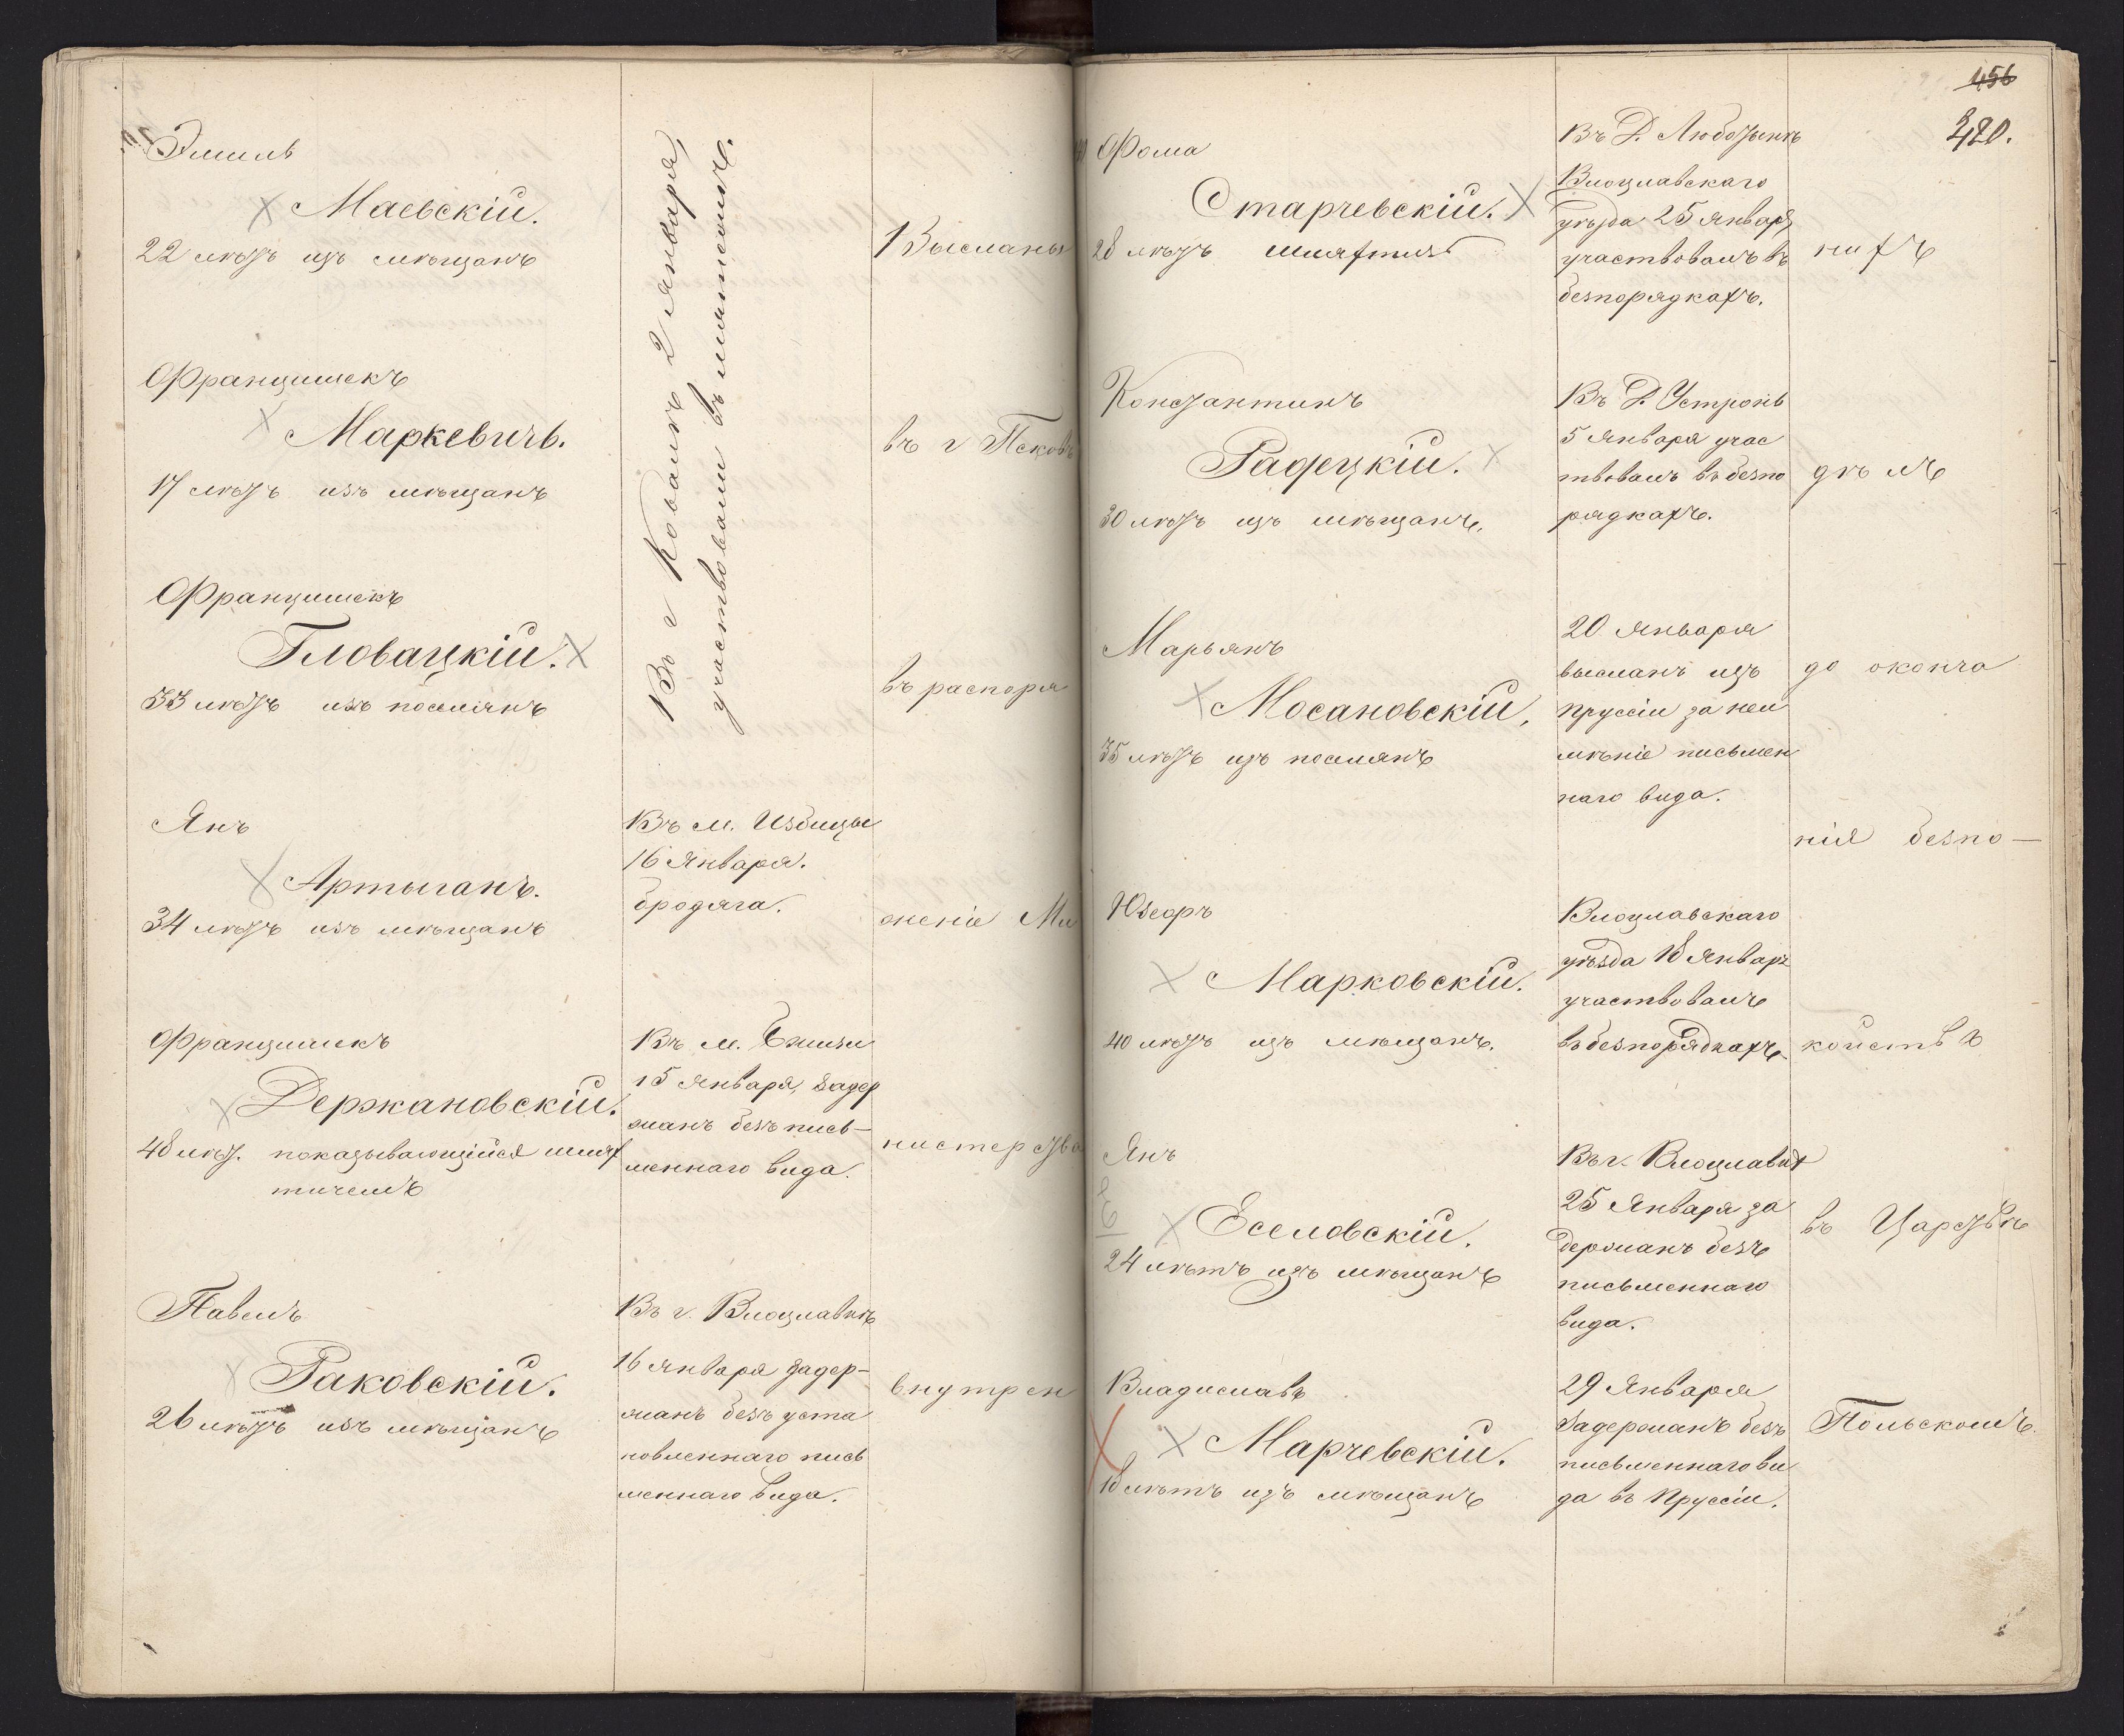 Эмиль
Маевскій.
22 лѣтъ изъ мѣщанъ
Францишекъ
Маркевичъ.
17 лѣтъ изъ мѣщанъ
Францишекъ
Гловацкій.
33 лѣтъ изъ поселянъ
Янъ
Артыганъ.
34 лѣтъ изъ мѣщанъ
Францишекъ
Держановскій.
48 лѣт. показывающійся шлях
тичемъ
Павелъ
Раковскій.
26 лѣтъ изъ мѣщанъ
Въ г Ковалѣ 2 января,
участвовали въ мятежѣ.
Въ м. Избицы
16 Января.
бродяга.
Въ м.
15 Января, задер
жанъ безъ пись-
меннаго вида.
Въ г. Влоцлавкѣ
16 Января задер-
жанъ безъ уста
новленнаго пись
меннаго вида.
Высланы
въ г Псковъ
въ распоря
женіе Ми
нистерства
внутрен
456
480.
Фома
Старчевскій.
28 лѣтъ шляхтичъ
Константинъ
Радецкій.
30 лѣтъ изъ мѣщанъ.
Марьянъ
Мосановскій,
35 лѣтъ изъ поселянъ
Юзефъ
Марковскій.
40 лѣтъ изъ мѣщанъ.
Янъ
Еселовскій.
24 лѣтъ изъ мѣщанъ
Владиславъ
Марчевскій.
18 лѣтъ изъ мѣщанъ
Въ Д.
Влоцлавскаго
уѣзда 25 Января
участвовалъ въ
безпорядкахъ.
Въ Д. Устронѣ
5 Января учас
твовалъ въ безпо
рядкахъ.
20 Января
высланъ изъ
Пруссіи за неи
мѣніе письмен
наго вида.
Влоцлавскаго
уѣзда 18 Январ
участвовалъ
въ безпорядкахъ
Въ г. Влоцлавкѣ
25 Января за
держанъ безъ
письменнаго
вида.
29 Января
Задержанъ безъ
письменнаго ви
да въ Пруссіи.
нихъ
дѣлъ
до оконча
нія безпо-
койствъ
въ Царствѣ
Польскомъ.